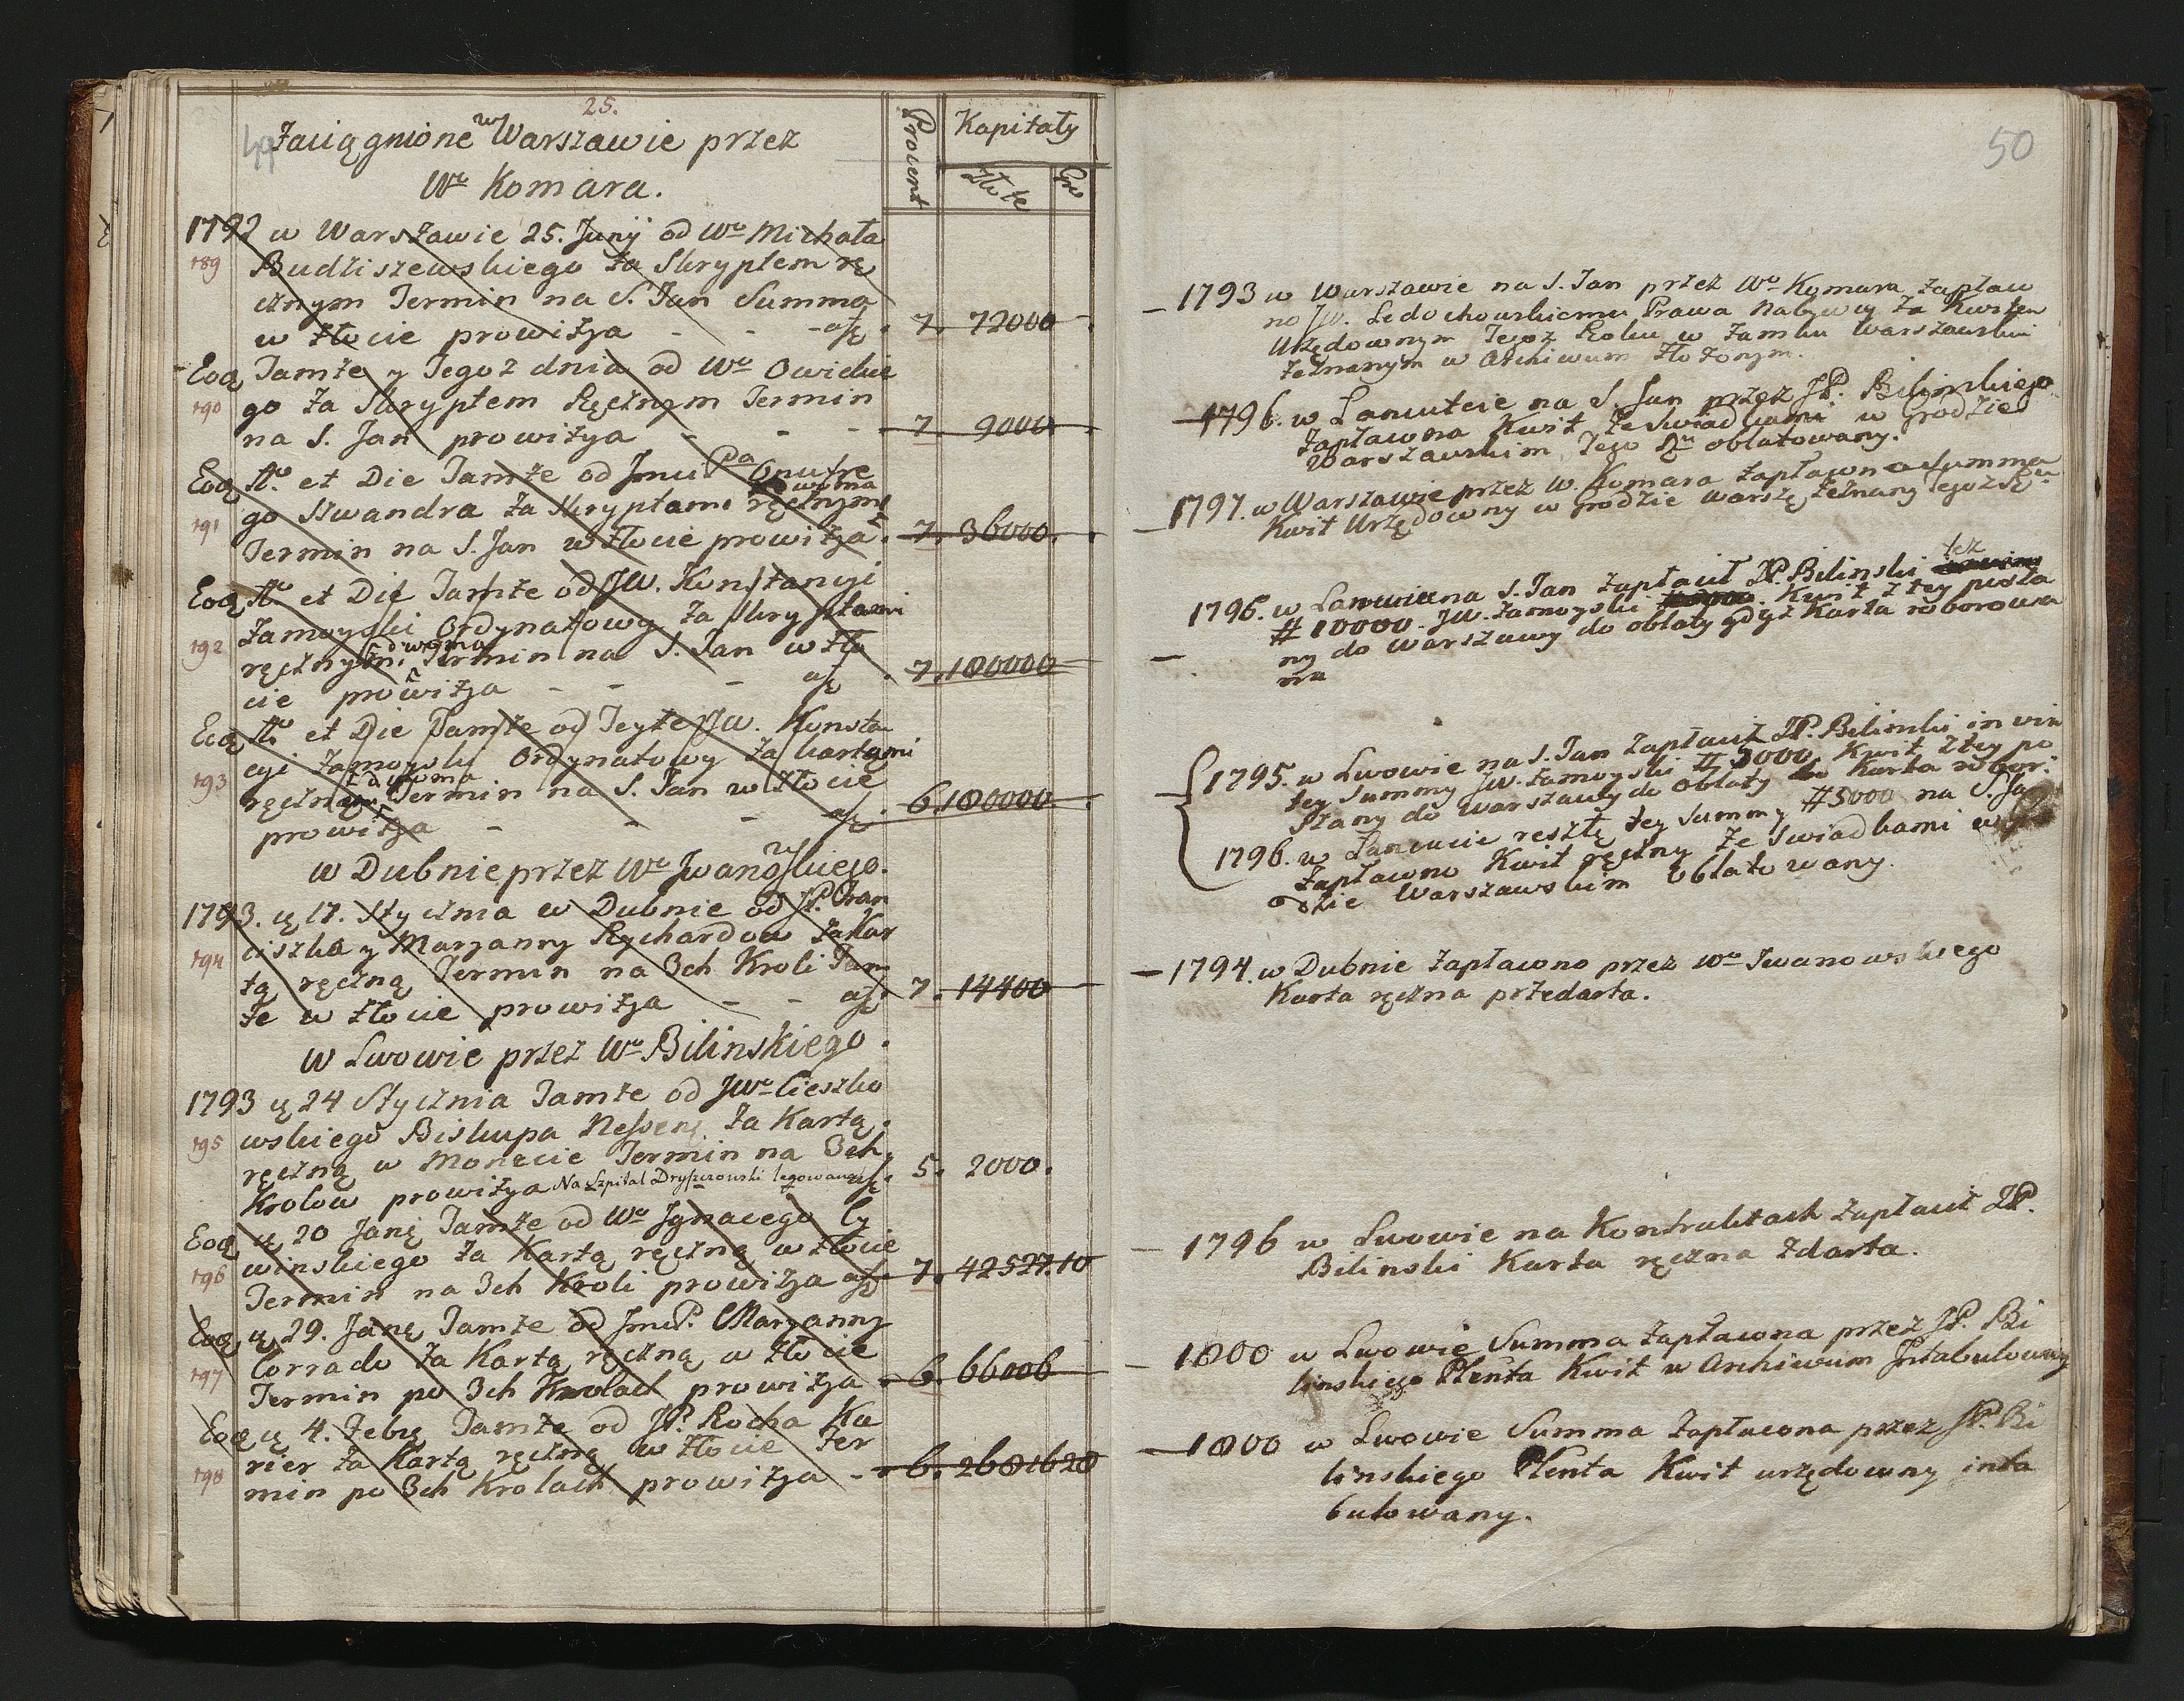 25.
Zaciągnione w Warszawie przez
Wo Komara.
Procent
Kapitały
Złote
Gr
1792 w Warszawie 25. Junÿ od Wo Michała
189 Budziszewskiego za Skryptem rę
cznym Termin na S. Jan Summa
w złocie prowizya - - - 7. 72000
Eoq Tamże y Tegoz dnia od Wo Owidzkie
190 go za Skryptem Ręcznym Termin
na S. Jan prowizya - - - 7. 9000
Eoq Ao et Die Tamże od Jmci Pa Onufre
191 go Szwandra za Skryptami dwoma ręcznymi
Termin na S. Jan w złocie prowizya. 7. 36000.
Eoq Ao et Die Tamże od JW. Konstancyi
Zamoyski Ordynatowy za Skryptami
192 ręcznymi dwoma Termin na S. Jan w zło
cie prowizya - - - 7. 180000
Eoq Ao et Die Tamże od Teyże JW. Konstan
cyi Zamoyski Ordynatowy za kartami
193 ręcznymi dwoma Termin na S. Jan w złocie
prowizya - - - 6. 180000
w Dubnie przez Wo Jwanowskiego.
1793. ą 17. Stycznia w Dubnie od JP. Fran
194 ciszka y Maryanny Rychardow za Kar
tą ręczną Termin na 3ch Kroli Tam
że w złocie prowizya - - 7. 14400
w Lwowie przez Wo Bilinskiego.
1793 ą 24 Stycznia Tamże od JWo Cieszko
195 wskiego Biskupa za Kartą
ręczną w Monecie Termin na 3ch
Krolow prowizya Na Szpital Dryszczowski legowana 5. 2000.
Eoq ą 20 Janę Tamże od Wo Jgnacego Cy
196 winskiego za Kartą ręczną w złocie
Termin na 3ch Kroli prowizya 7. 42527.10
Eoq ą 29. Janę Tamże od JmcP. Maryanny
197 Corrado za Kartą ręczną w złocie
Termin po 3ch Krolach prowizya 6. 66006
Eoq ą 4. Febrę Tamże od JP. Rocha Ku
198 rier za Kartą ręczną w złocie Ter
min po 3ch Krolach prowizya - 6. 26816 28
50
1793 w Warszawie na S. Jan przez Wo Komara zapłaco
no JW. Ledochowskiemu Prawa Nabywcy za Kwitem
Urzędownym Tegoż Roku w Zamku Warszawskim
zeznanym w Archiwum złożonym.
1796. w Lancucie na S. Jan przez JP. Bilinskiego
zapłacona Kwit ze Swiadkami w Grodzie
Warszawskim Tego oblatowany.
1797. w Warszawie przez W. Komara zapłacona Summa
Kwit Urzędowny w Grodzie Warszę zeznany Tegoż
1796. w Lancucie na S. Jan zapłacił JP. Bilinski tez
# 10000. JW. Zamoyski Kwit z tey posła
ny do Warszawy do oblaty gdyż Karta roborowa
na
1795. w Lwowie na S. Jan zapłacił JP. Bilinski in vim
tey Summy JW. Zamoyski # 5000 Kwit z tey po
słany do Warszawy do oblaty Karta robor.
1796. w Lancucie resztę tey Summy # 5000 na S. Jan
zapłacono Kwit ręczny ze Swiadkami w Gr
odzie Warszawskim Oblatowany.
1794. w Dubnie zapłacono przez Wo Jwanowskiego
Karta ręczna przedarta.
1796 w Lwowie na Kontraktach zapłacił JP.
Bilinski Karta ręczna zdarta.
1800 w Lwowie Summa zapłacona przez JP. Bi
linskiego Plenta Kwit w Archiwum Jntabulowany
1800 w Lwowie Summa zapłacona przez JP. Bi
linskiego Plenta Kwit urzędowny inta
bulowany.